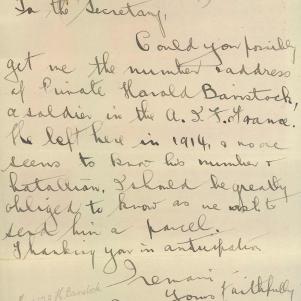 To the Secretary,
Could you possibly
get me the number & address
of Private Harold Barrstock,
a soldier in the A.I.F. France.
He left here in 1914, & no one
seems to know his number &
battalion. I should be greatly
obliged to know as we wish to
send him a parcel.
Thanking you in anticipation
I remain
Yours Faithfully